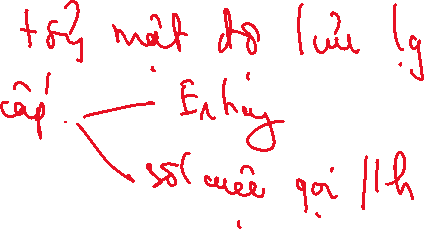 tổng mật độ lưu lg
cấp Erlang
số cuộc gọi /1h